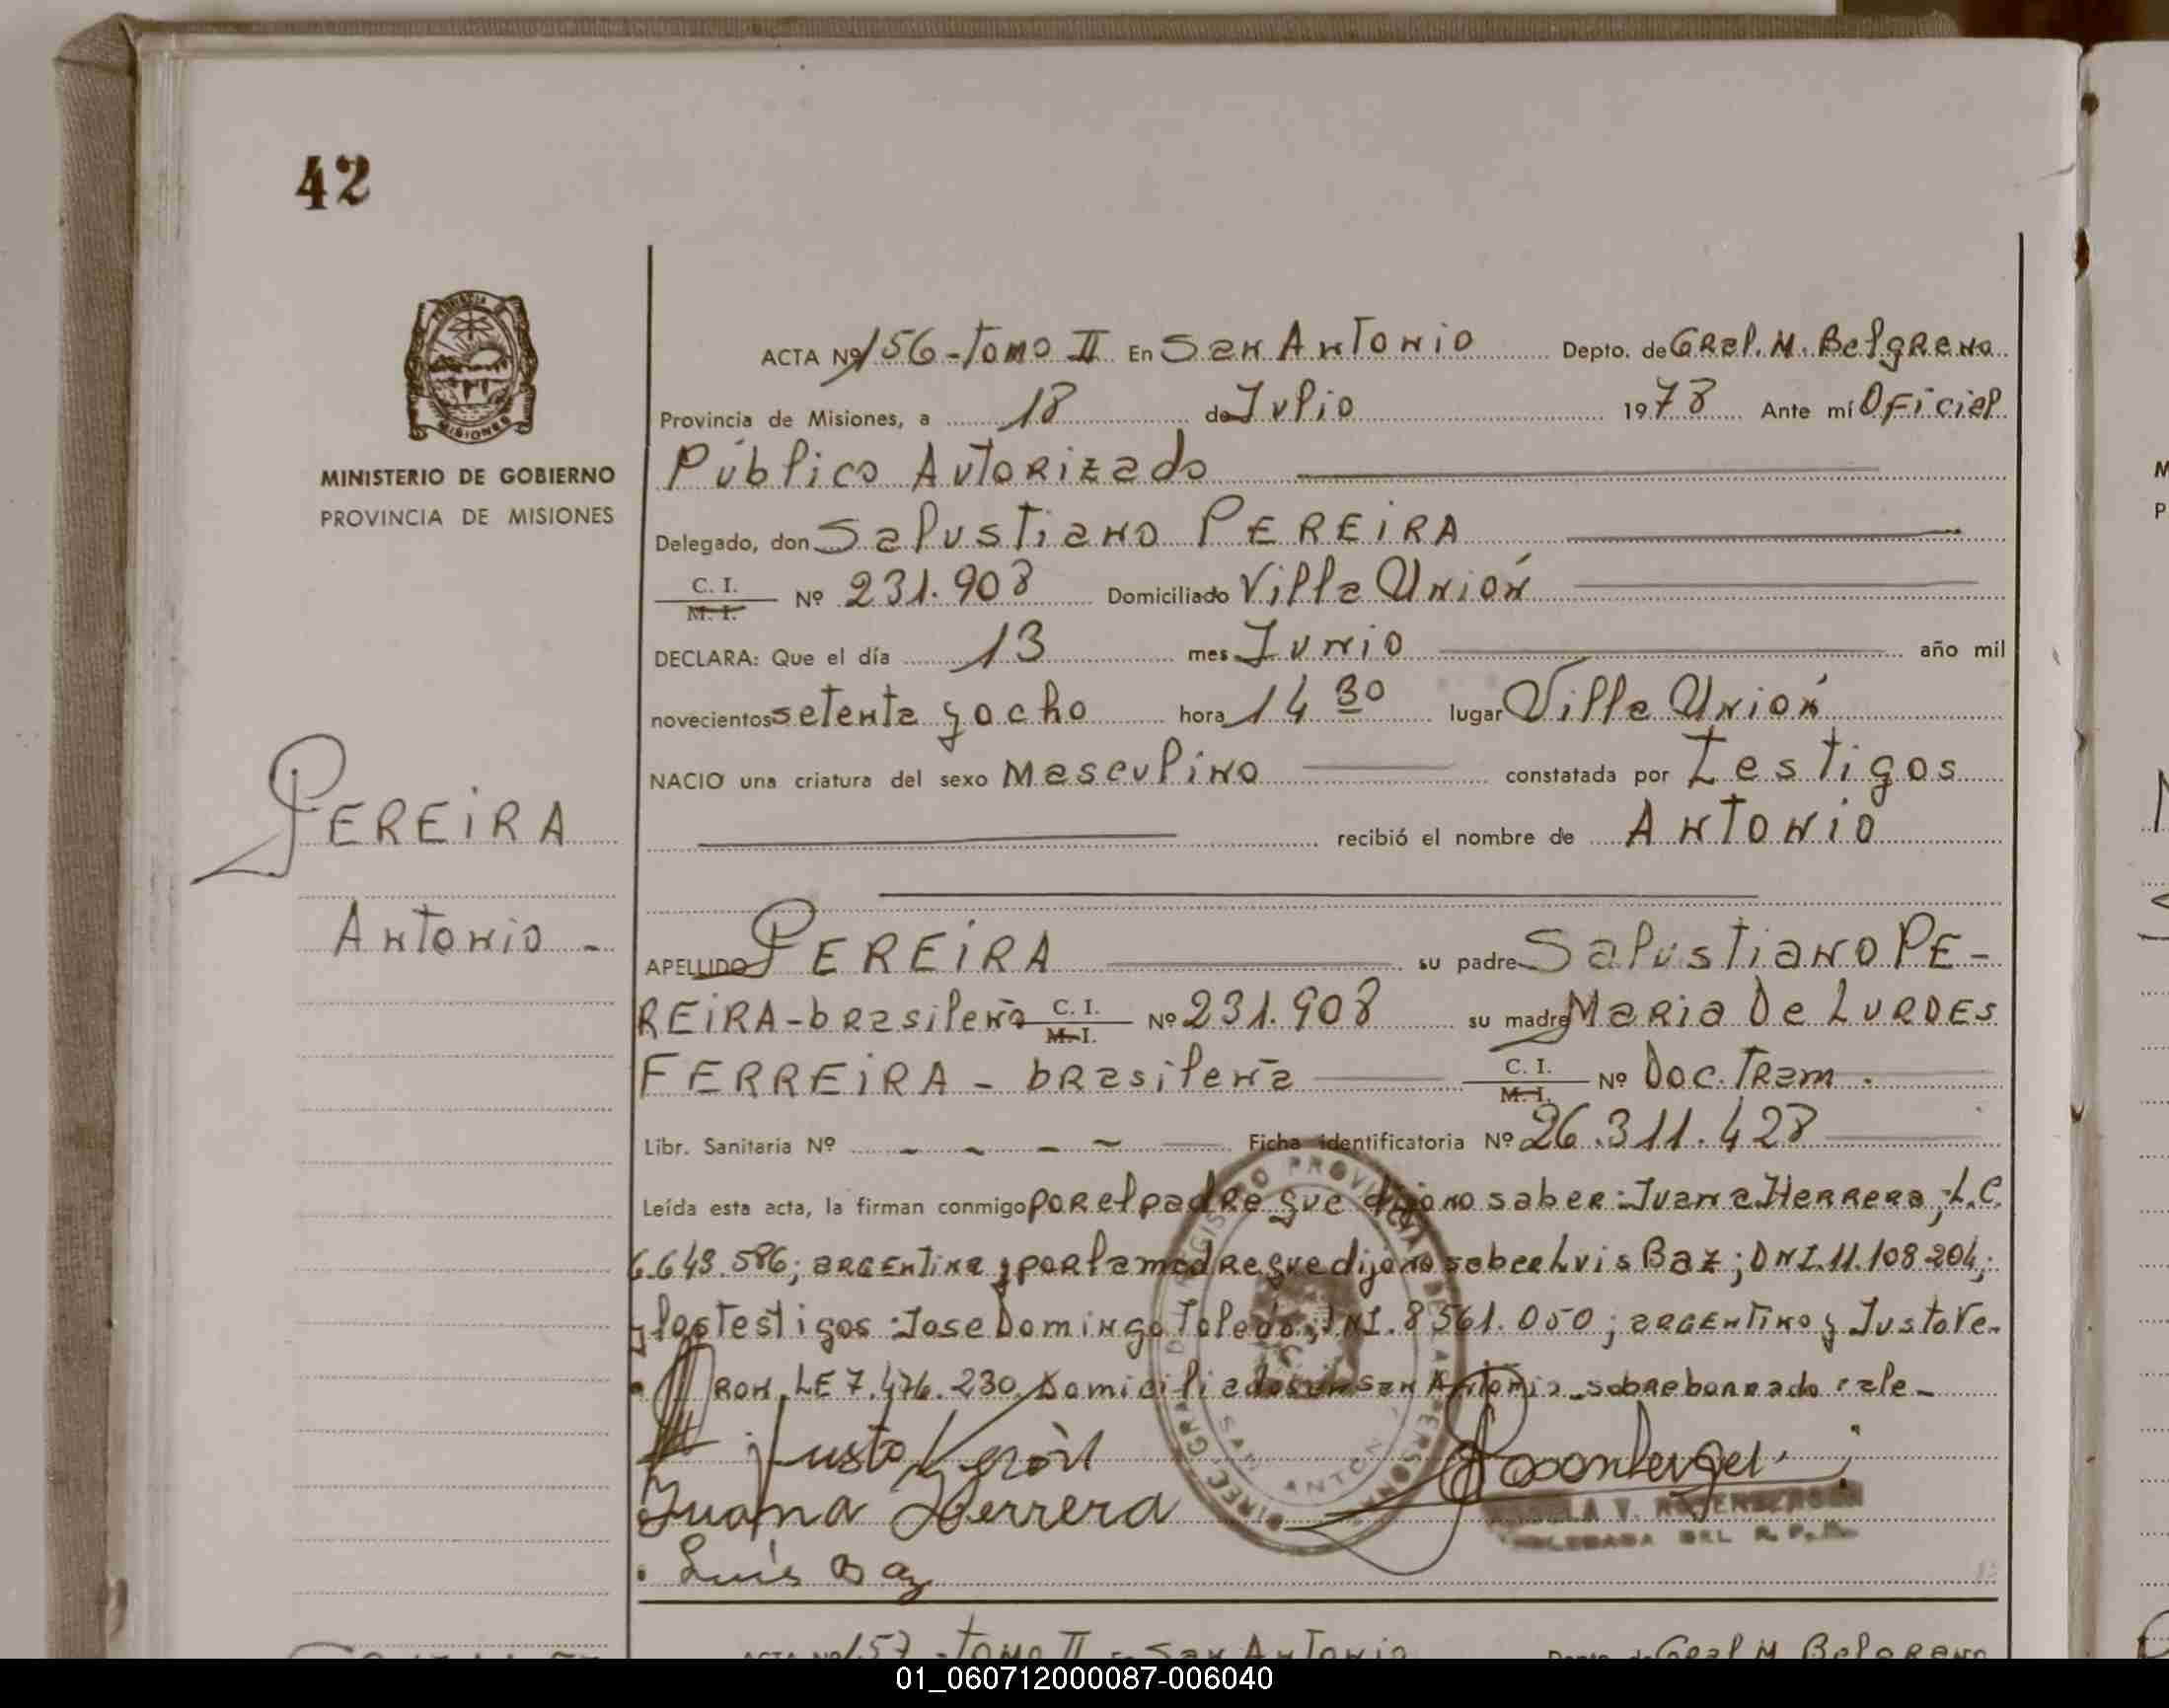 42
MISIONES
MINISTERIO DE GOBIERNO
PROVINCIA DE MISIONES
ACTA Nº 156 - Tomo II En San Antonio Depto. de Gral. M. Belgrano
Provincia de Misiones, a 18 de Julio 1978 Ante mí Oficial
Público Autorizado
Delegado, don Salustiano PEREIRA
C. I.
M. I. Nº 231.908 Domiciliado Villa Unión
DECLARA: Que el día 13 mes Junio año mil
novecientos setenta y ocho hora 14 30 lugar Villa Unión
NACIO una criatura del sexo Masculino constatada por Testigos
recibió el nombre de Antonio
PEREIRA
Antonio -
APELLIDO PEREIRA su padre Salustiano PE-
REIRA - brasileño C. I. M. I. Nº 231.908 su madre Maria De LURDES
FERREIRA - brasileña C. I. M. I. Nº Doc. Tram.
Libr. Sanitaria Nº - - - - Ficha identificatoria Nº 26.311.428
Leída esta acta, la firman conmigo por el padre que dijo no saber: Juana Herrera; L.C.
6.643.586; argentina y por la madre que dijo no saber Luis Baz; DNI. 11.108 204;
y los testigos: Jose Domingo Toledo; DNI. 8561.050; argentino y Justo Ve-
ron LE 7.476.230. Domiciliados en San Antonio - sobreborrado: vale -
Justo Verón
Juana Herrera
Luis Baz
DELEGADA DEL R. P.
ACTA Nº 157 - Tomo II En San Antonio Depto. de Gral M. Belgrano
01_060712000087-006040